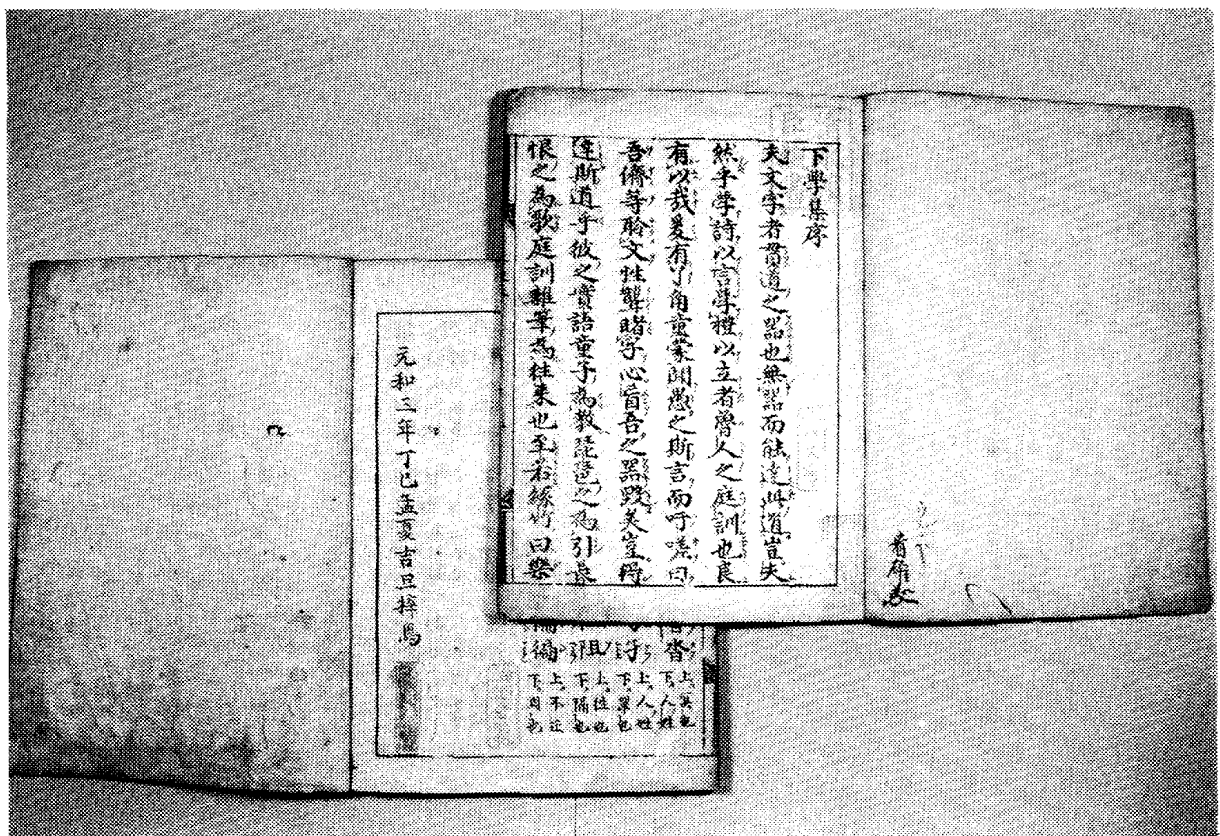 下學集序
夫文字者貫道之器也無器而能達此道豈夫
然乎學詩以言學禮以立者魯人之庭訓也良
有以哉爰有丫角童蒙聞愚之斯言而吁嗟曰
吾儕等聆文性聾睹字心盲吾之器毀矣豈得
達斯道乎彼之實語童子為教琵琶之為引長
恨之為歌庭訓雜筆為往來也至若絲竹曰樂
上人姓
下單也
下隔也
上不正
元和三年丁巳孟夏吉旦梓焉